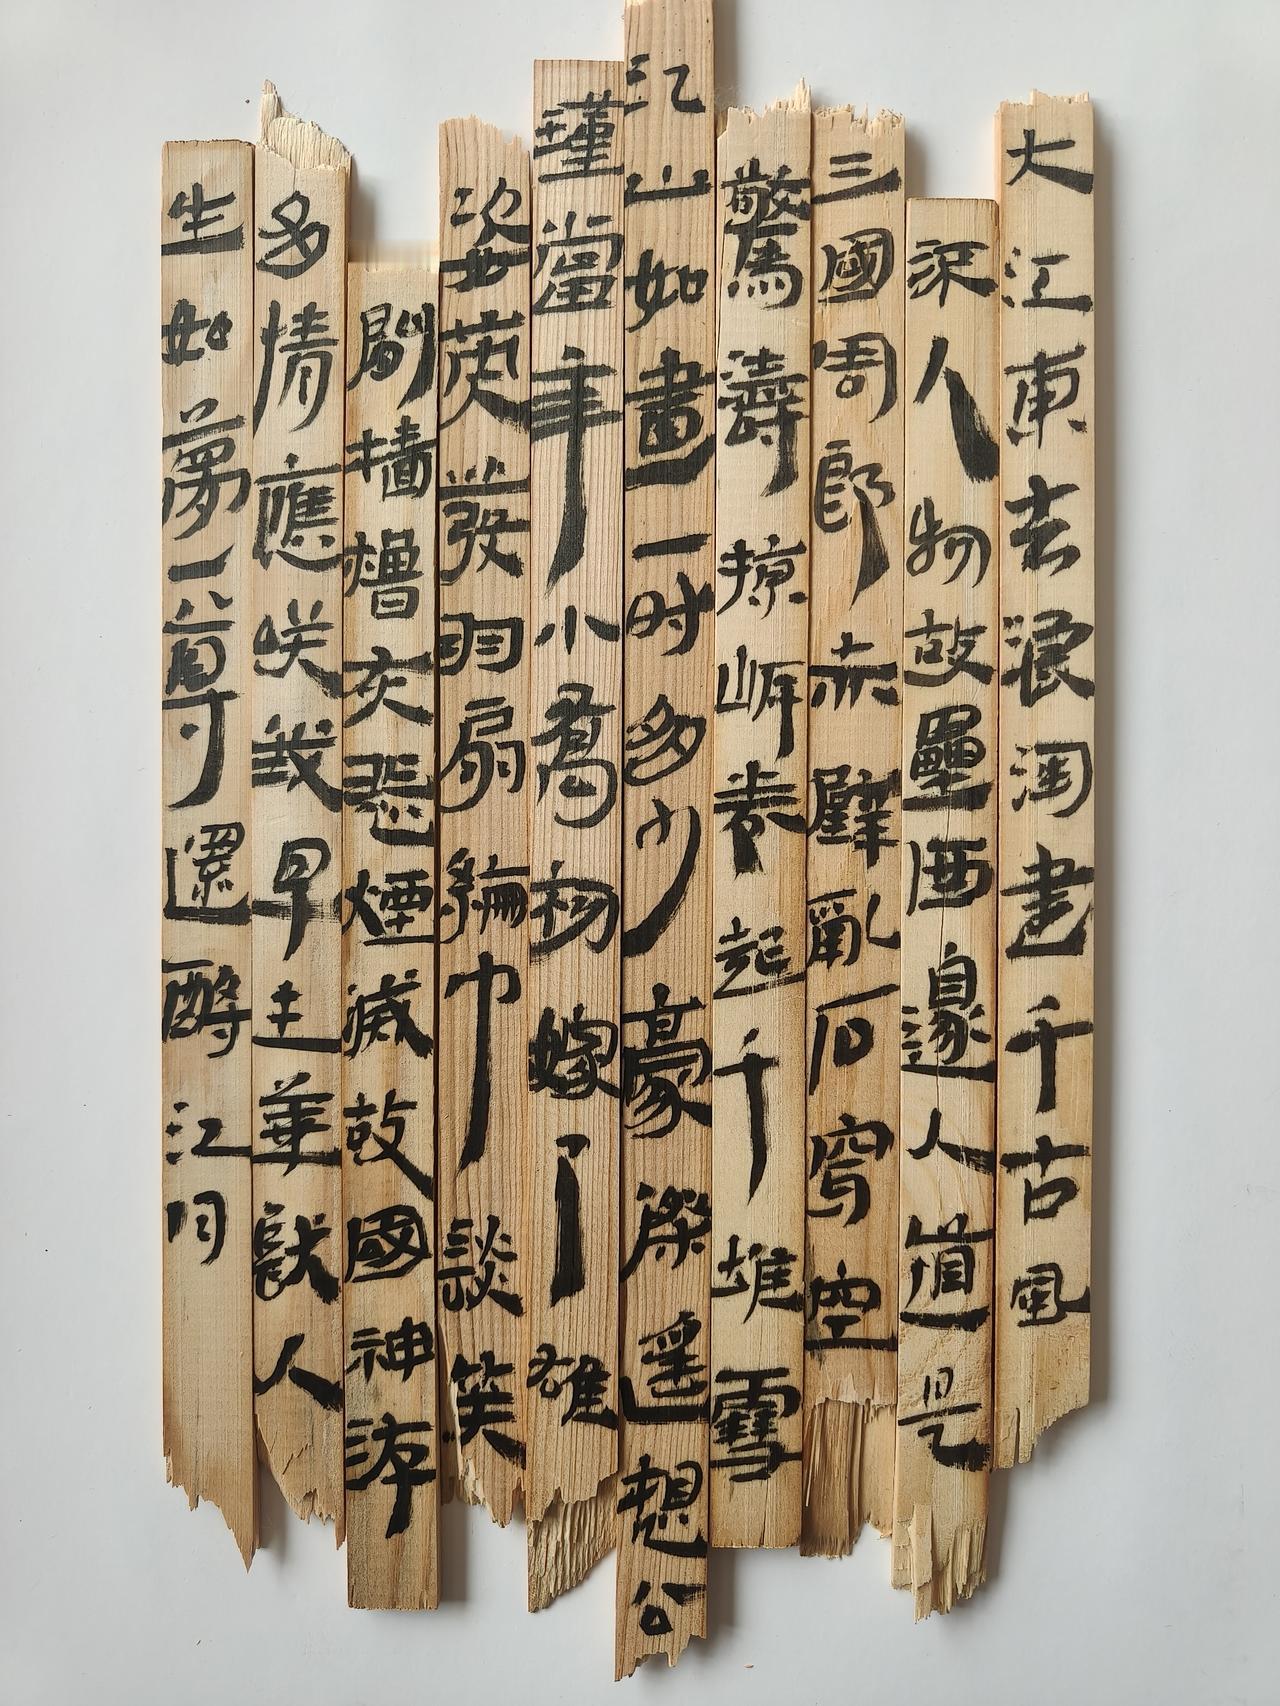 大江東去浪淘盡千古風
流人物故壘西邊人道是
三國周郎赤壁亂石穿空
驚濤掠岸卷起千堆雪
江山如畫一时多少豪傑遥想公
瑾當年小喬初嫁了雄
姿英發羽扇綸巾談笑
間檣櫓灰飛煙滅故國神游
多情應咲我早生華髮人
生如夢一尊還酹江月